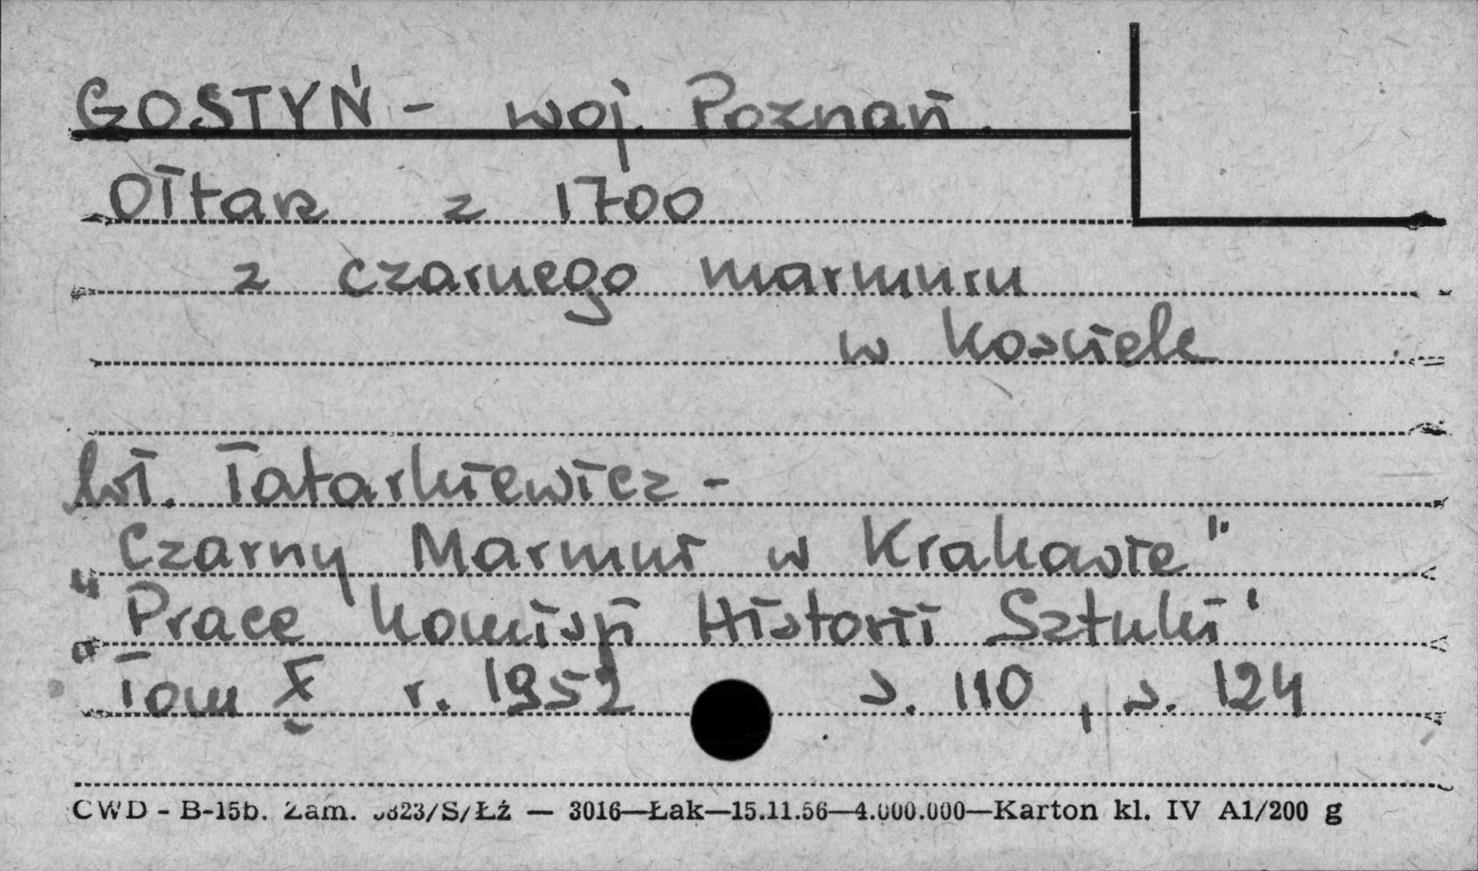 GOSTYŃ - woj. Poznań.
Ołtarz z 1700
z czarnego marmuru
w Kościele
Wł. Tatarkiewicz -
"Czarny Marmur w Krakowie"
"Prace Komisji Historii Sztuki"
Tom X r. 1952 s. 110, s. 124
CWD - B-15b. Zam. 3823/S/Łż — 3016—Łak—15.11.56—4.000.000—Karton kl. IV A1/200 g